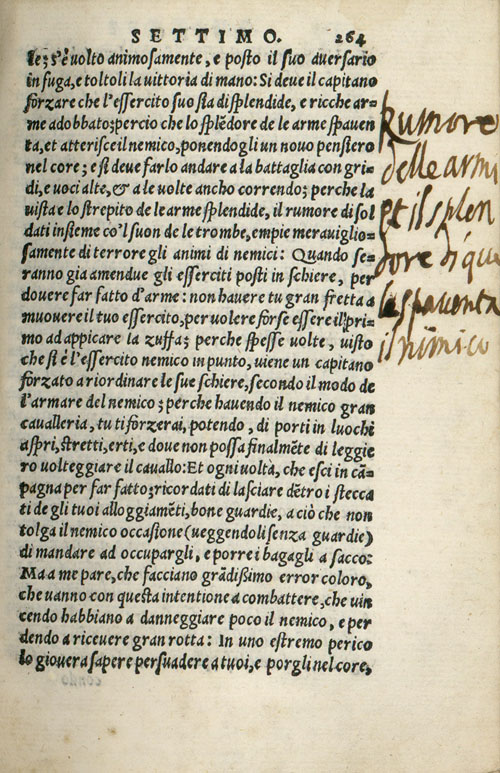 SETTIMO. 264
le; s'è uolto animosamente, e posto il suo auersario
in fuga, e toltoli la uittoria di mano: Si deue il capitano
forzare che l'essercito suo sia di splendide, e ricche ar=
me adobbato; percio che lo splēdore de le arme spauen
ta, et atterisce il nemico, ponendogli un nouo pensiero
nel core; e si deue farlo andare a la battaglia con gri=
di, e uoci alte, & a le uolte ancho correndo; perche la
uista e lo strepito de le arme splendide, il rumore di sol
dati insieme co'l suon de le trombe, empie merauiglio=
samente di terrore gli animi di nemici: Quando se=
ranno gia amendue gli esserciti posti in schiere, per
douere far fatto d'arme: non hauere tu gran fretta a
muouere il tuo essercito, per uolere forse essere il pri=
mo ad appicare la zuffa; perche spesse uolte, uisto
che si è l'essercito nemico in punto, uiene un capitano
forzato a riordinare le sue schiere, secondo il modo de
l'armare del nemico; perche hauendo il nemico gran
caualleria, tu ti forzerai, potendo, di porti in luochi
aspri, stretti, erti, e doue non possa finalmēte di leggie
ro uolteggiare il cauallo: Et ogni uolta, che esci in cā=
pagna per far fatto; ricordati di lasciare dētro i stecca
ti de gli tuoi alloggiamēti, bone guardie, a ciò che non
tolga il nemico occasione (ueggendoli senza guardie)
di mandare ad occupargli, e porre i bagagli a sacco:
Ma a me pare, che facciano grādissimo error coloro,
che uanno con questa intentione a combattere, che uin
cendo habbiano a danneggiare poco il nemico, e per
dendo a riceuere gran rotta: In uno estremo perico
lo giouera sapere persuadere a tuoi, e porgli nel core,
Rumore
delle armi
et il splen
dore di que
le spauenta
il nimico